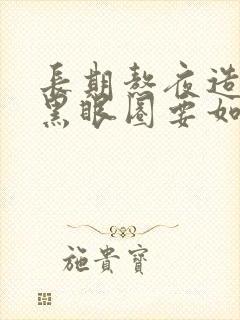 長期熬夜造
黑眼圈要如
施貴寶